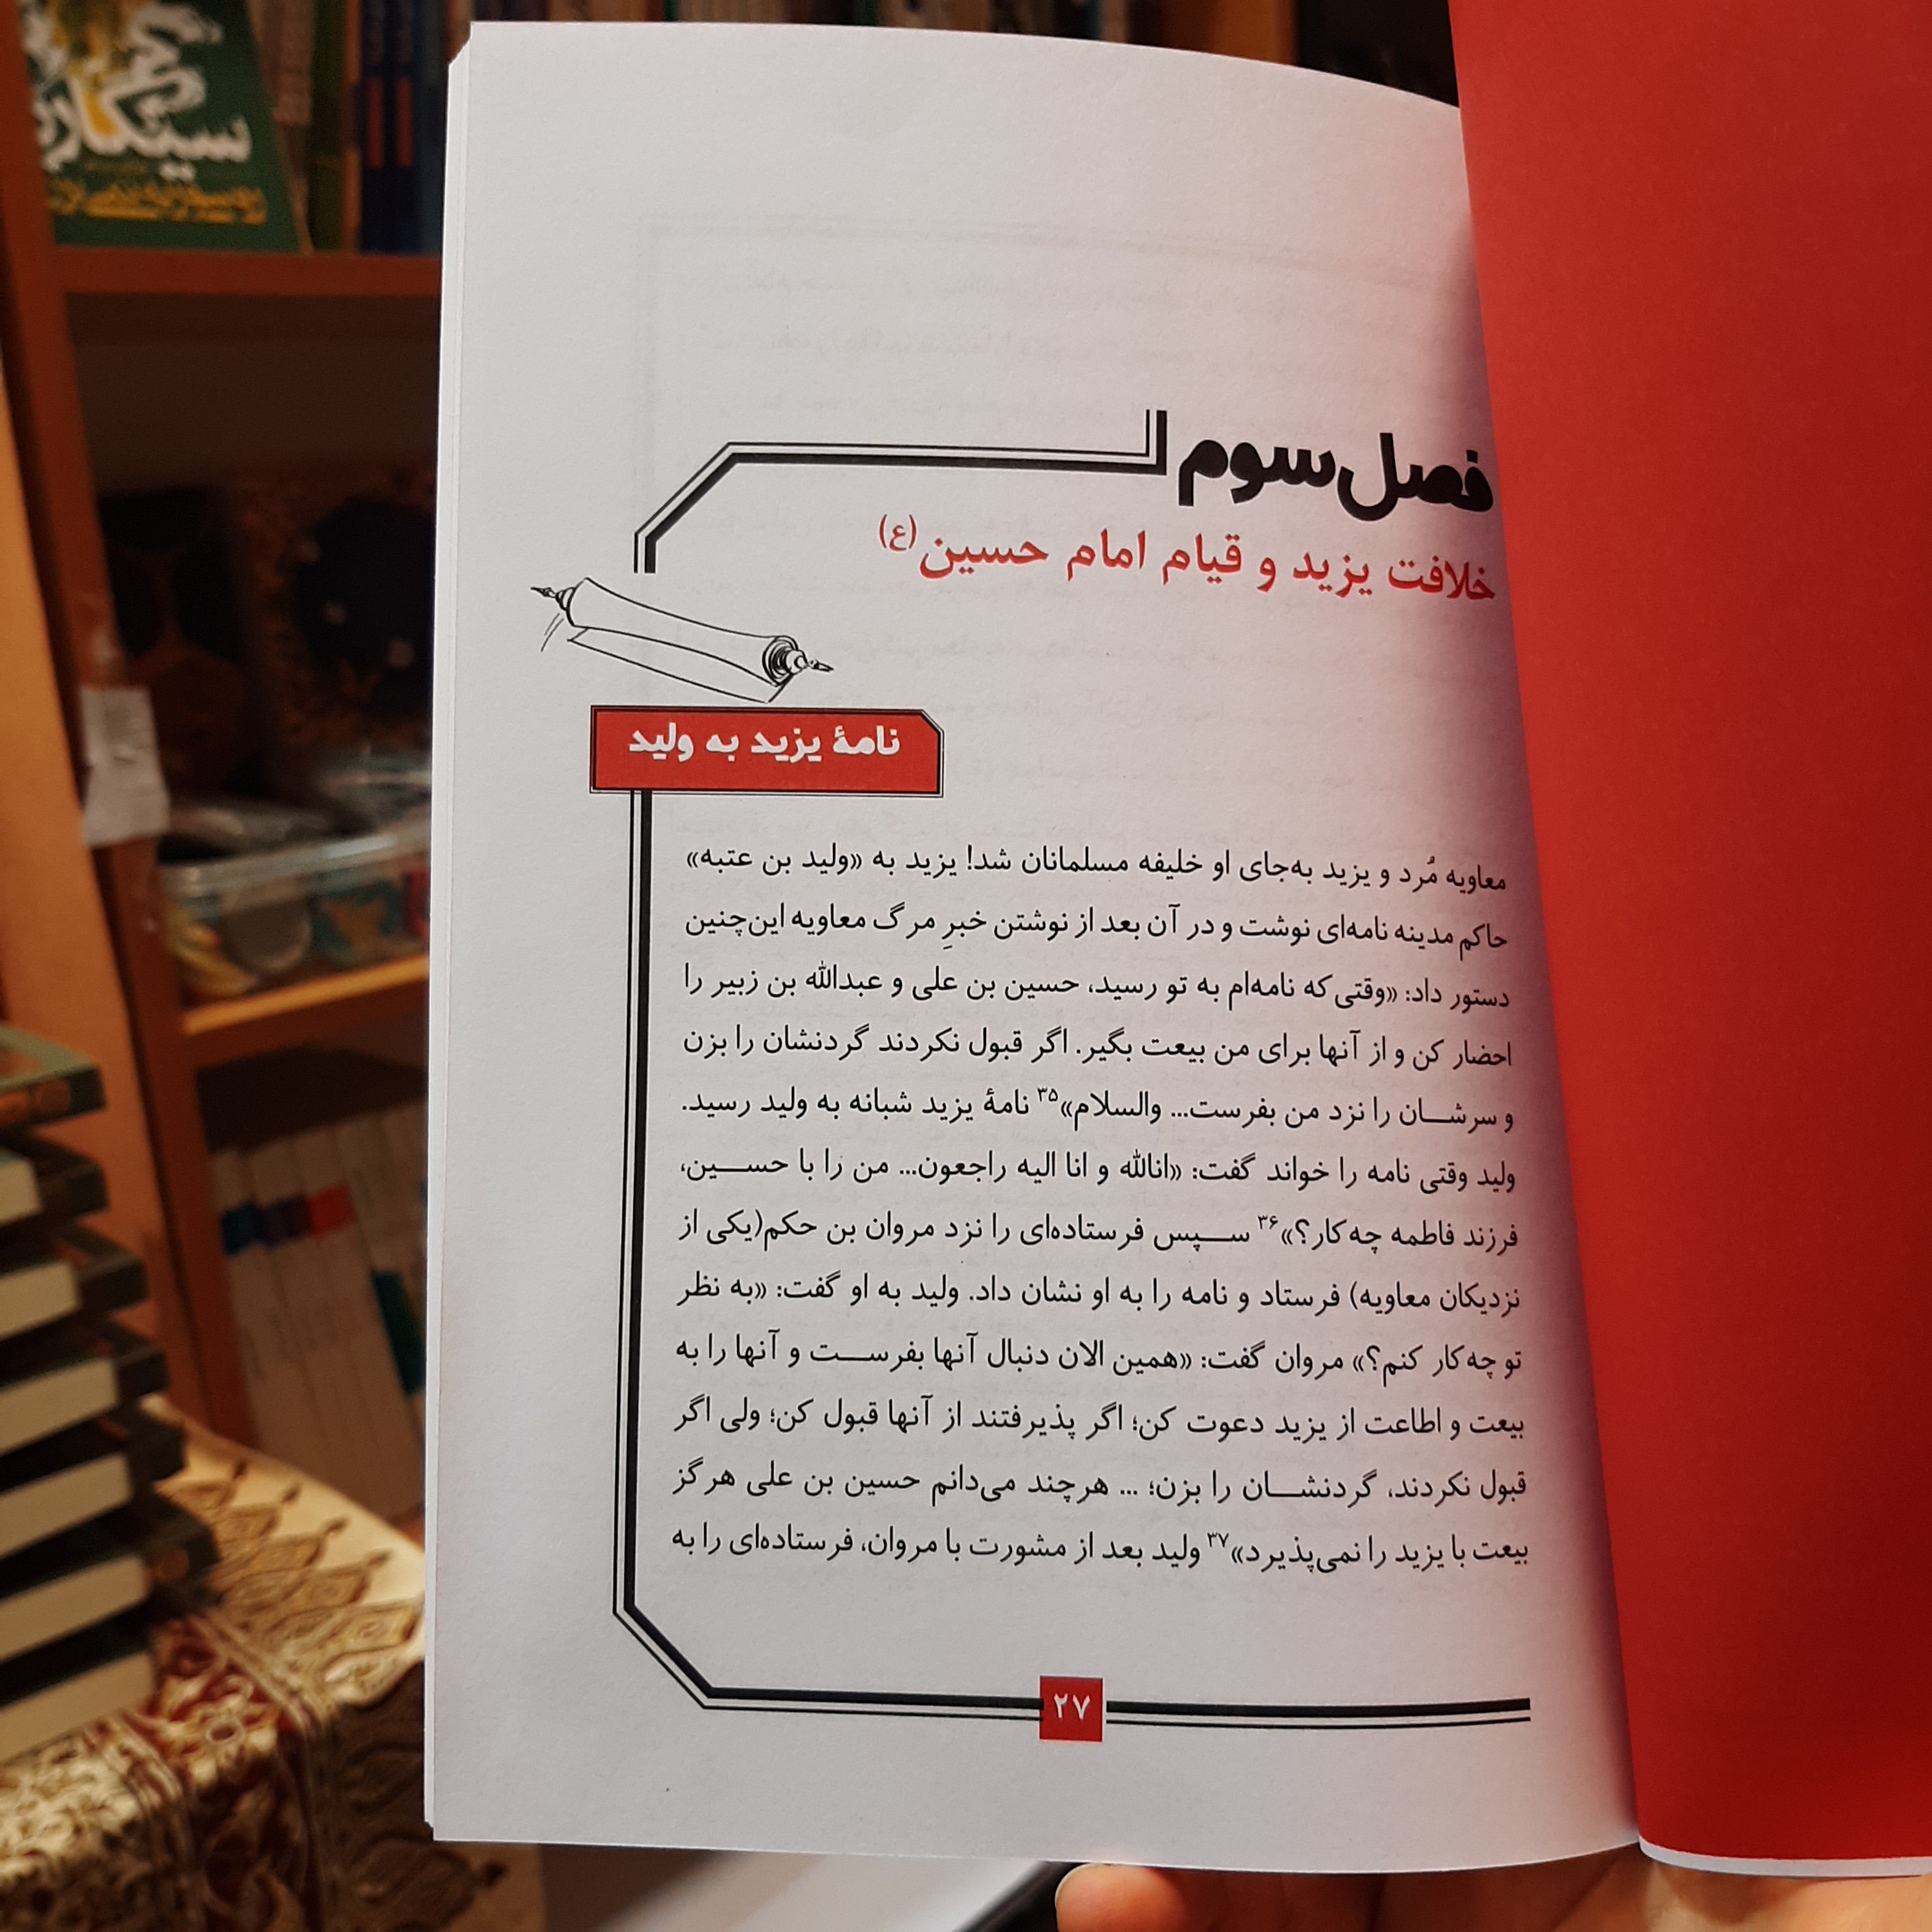 سیتکاره
فصل سوم
خلافت یزید و قیام امام حسین (ع)
نامهٔ یزید به ولید
معاویه مُرد و یزید به‌جای او خلیفه مسلمانان شد! یزید به «ولید بن عتبه»
حاکم مدینه نامه‌ای نوشت و در آن بعد از نوشتن خبرِ مرگ معاویه این‌چنین
دستور داد: «وقتی‌که نامه‌ام به تو رسید، حسین بن علی و عبدالله بن زبیر را
احضار کن و از آنها برای من بیعت بگیر. اگر قبول نکردند گردنشان را بزن
و سرشان را نزد من بفرست... والسلام»۳۵ نامهٔ یزید شبانه به ولید رسید.
ولید وقتی نامه را خواند گفت: «انالله و انا الیه راجعون... من را با حسین،
فرزند فاطمه چه‌کار؟»۳۶ سپس فرستاده‌ای را نزد مروان بن حکم(یکی از
نزدیکان معاویه) فرستاد و نامه را به او نشان داد. ولید به او گفت: «به نظر
تو چه‌کار کنم؟» مروان گفت: «همین الان دنبال آنها بفرست و آنها را به
بیعت و اطاعت از یزید دعوت کن؛ اگر پذیرفتند از آنها قبول کن؛ ولی اگر
قبول نکردند، گردنشان را بزن؛ ... هرچند می‌دانم حسین بن علی هرگز
بیعت با یزید را نمی‌پذیرد»۳۷ ولید بعد از مشورت با مروان، فرستاده‌ای را به
۲۷